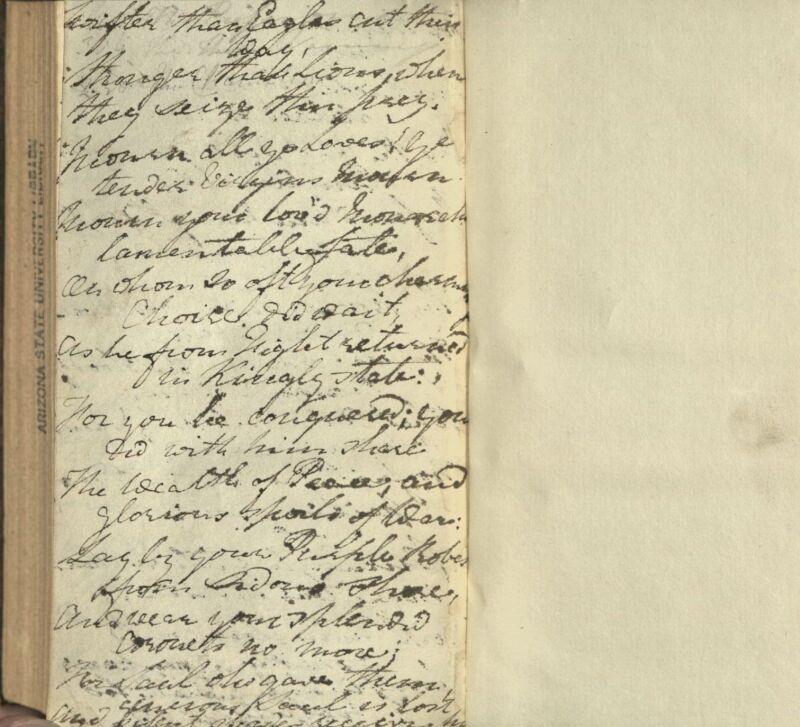 Swifter than Eagles cut their
way,
Stronger than Lions, when
they seize their prey.
Mourn all ye Loves! ye
tender Virgins mourn
Mourn your lov'd Monarchs
lamentable fate,
On whom so oft your
Choirs did wait,
As he from Fight returned
in Kingly state:
For you he conquered; you
did with him share
The Wealth of Peace, and
glorious spoils of War:
Lay by your Purple Robes
from Sidons shore,
And wear your splendid
coronets no more;
For Saul who gave them
generous Saul is lost
And
ARIZONA STATE UNIVERSITY LIBRARY